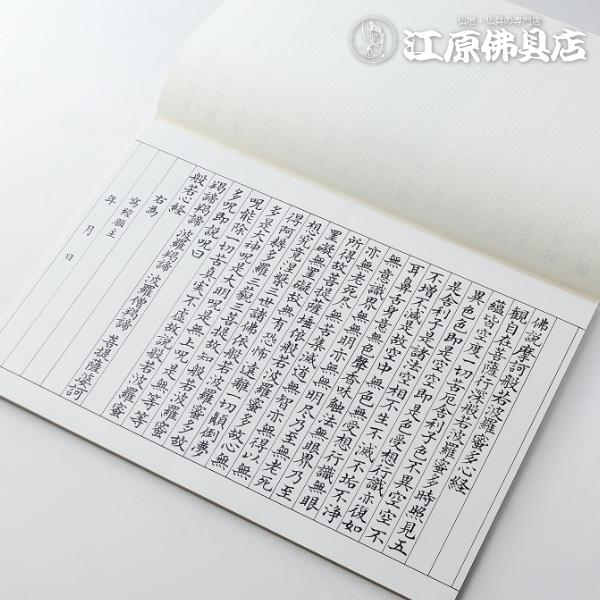 仏壇・仏具の専門店
江原佛具店
佛説摩訶般若波羅蜜多心経
観自在菩薩行深般若波羅蜜多時照見五
蘊皆空度一切苦厄舎利子色不異空空不
異色色即是空空即是色受想行識亦復如
是舎利子是諸法空相不生不滅不垢不浄
不増不減是故空中無色無受想行識無眼
耳鼻舌身意無色聲香味触法無眼界乃至
無意識界無無明亦無無明尽乃至無老死
亦無老死尽無苦集滅道無智亦無得以無
所得故菩提薩埵依般若波羅蜜多故心無
罣礙無罣礙故無有恐怖遠離一切顛倒夢
想究竟涅槃三世諸佛依般若波羅蜜多故
得阿耨多羅三藐三菩提故知般若波羅蜜
多是大神呪是大明呪是無上呪是無等等
呪能除一切苦真実不虚故説般若波羅蜜
多呪即説呪曰
羯諦羯諦 波羅羯諦 波羅僧羯諦 菩提薩婆訶
般若心経
右為
写経願主
年 月 日